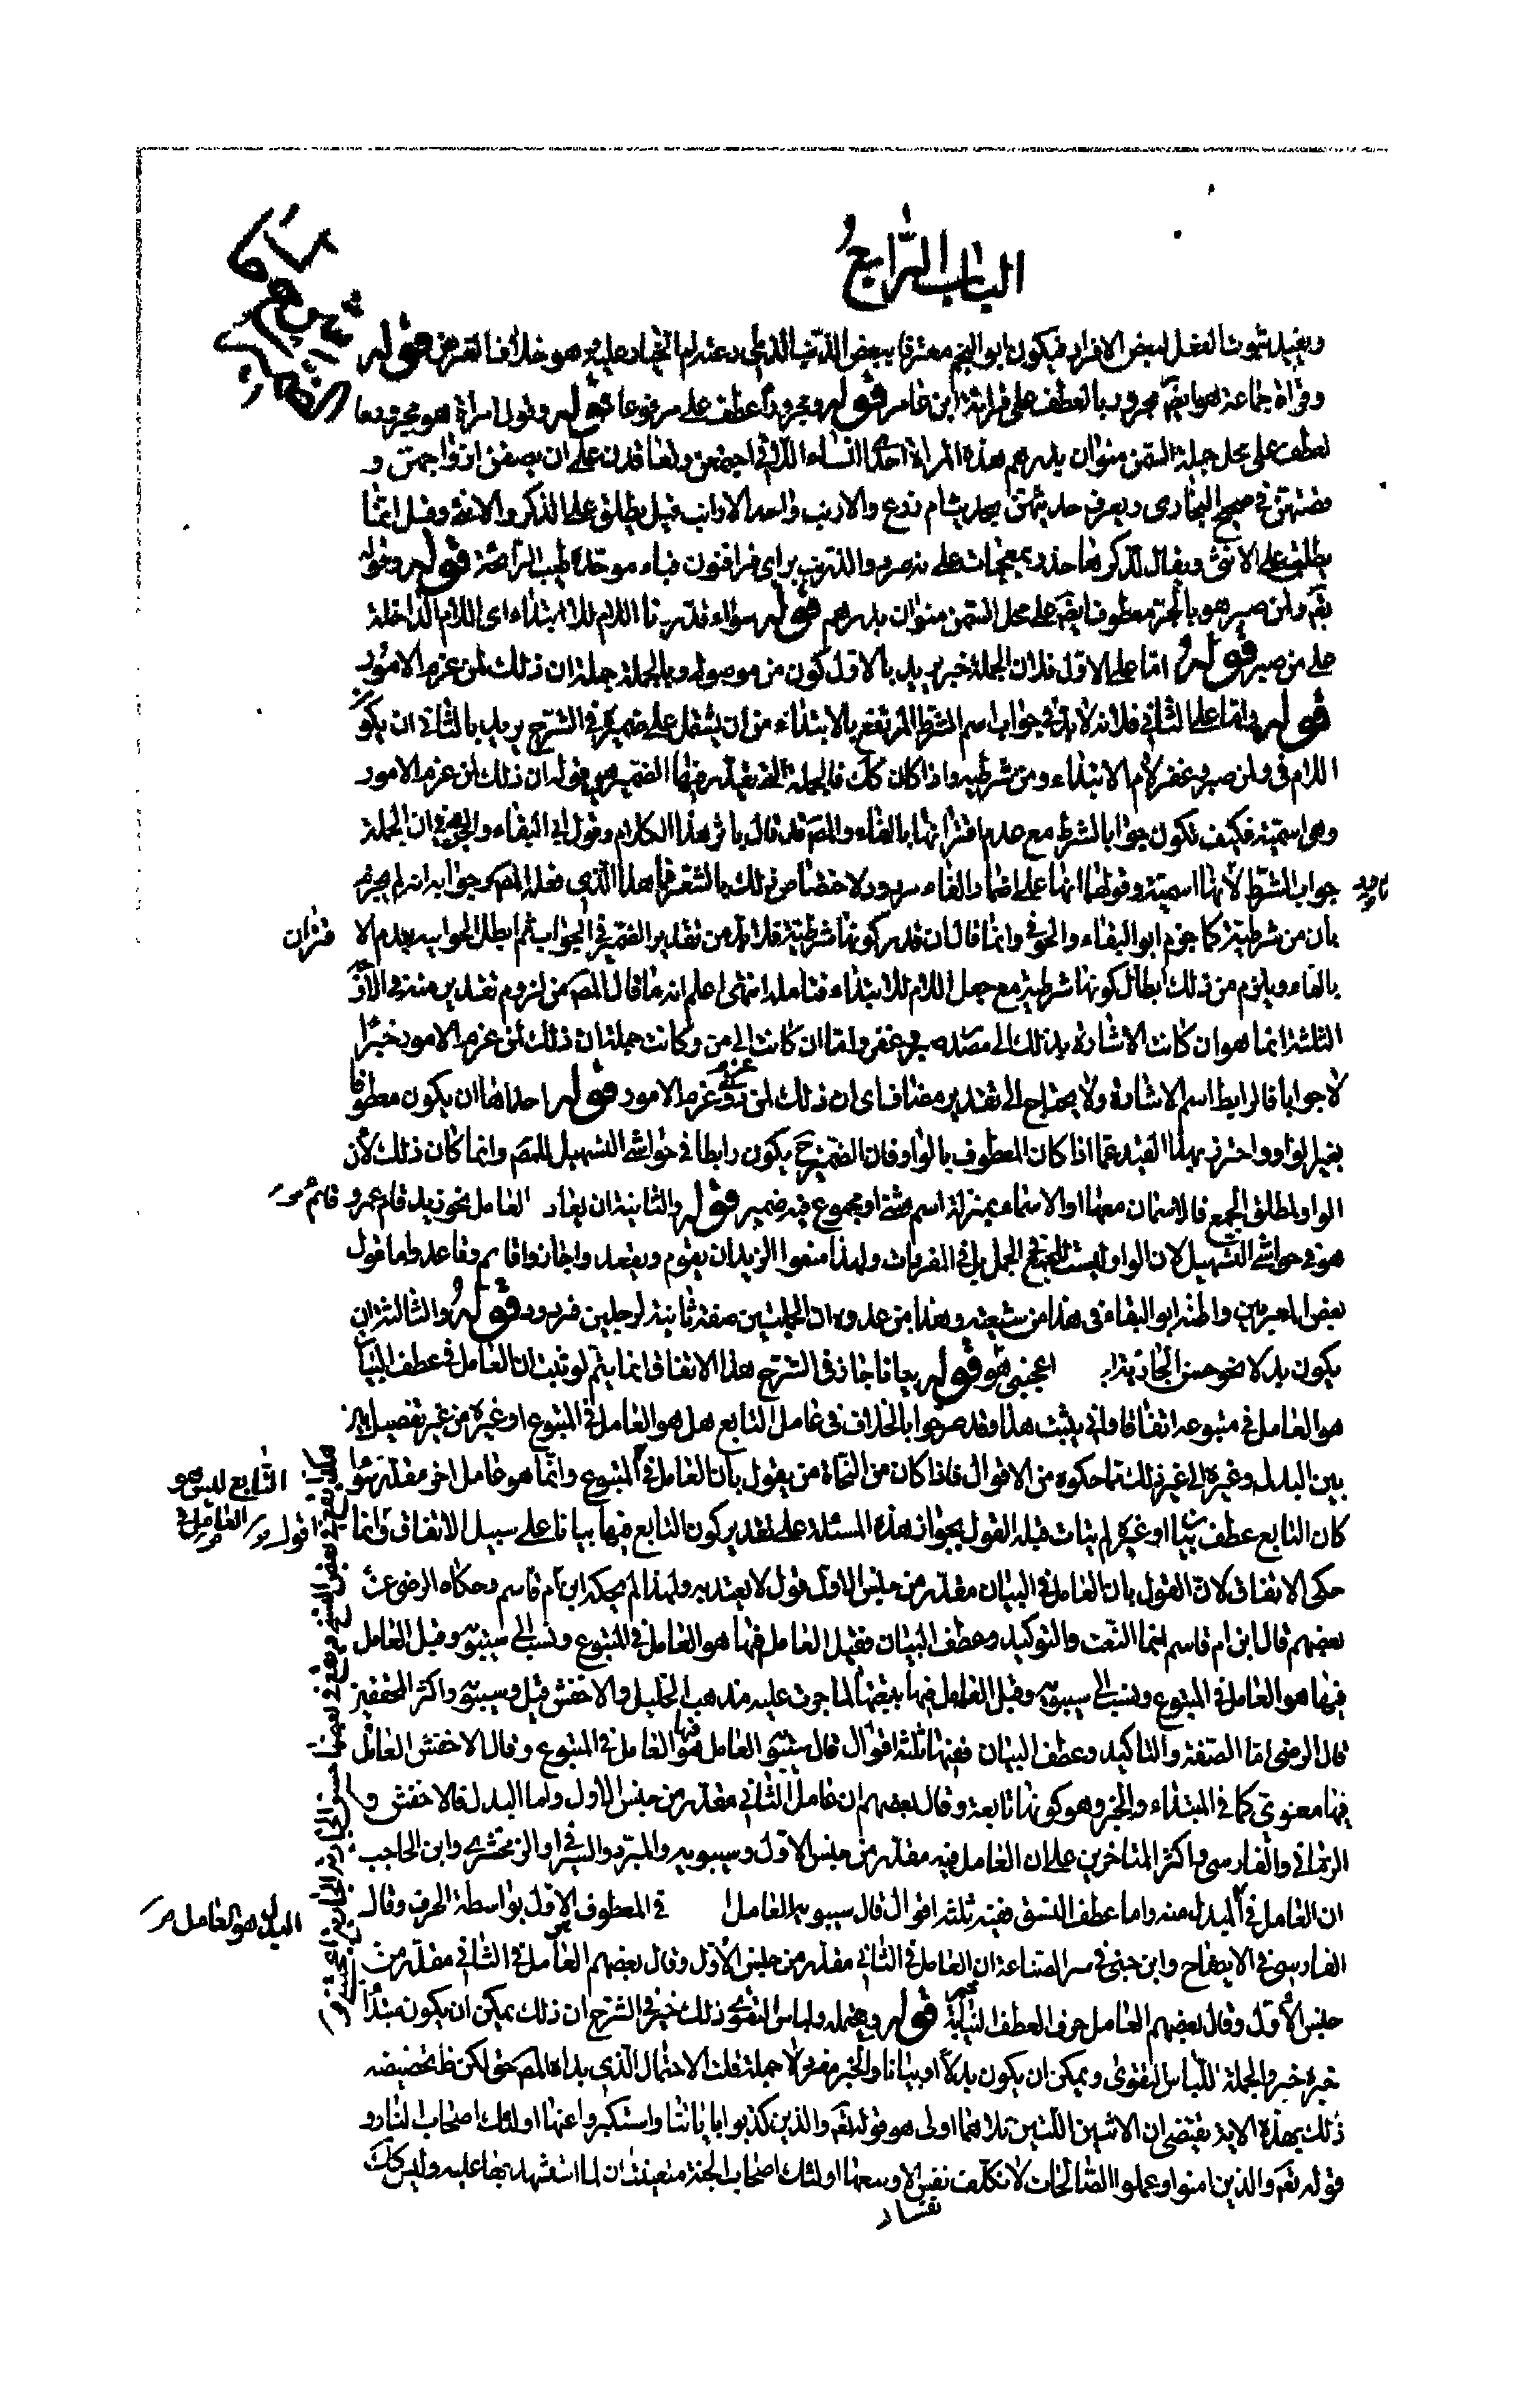 الباب الرابع
ويفيد ثبوت الفعل لبعض الافراد فيكون ابو النجم معترفا ببعض الذنب الذى ادعته ام الخيار عليه وهو خلاف الغرض قوله
وقراة جماعة هو ايضا مجرور بالعطف على قرائة ابن عامر قوله ومجرورا عطف على مرفوعا قوله وقول امراة هو مجرور معا
لعطف على محل جملة السمن منوان بدرهم هذه المراة احدى النساء اللاتى اجتمعن وتعاقدن على ان يصفن ازواجهن و
قضتهن فى صحيح البخارى ويعرف حديثهن بحديث ام زرع والارنب واحد الارانب قيل يطلق على الذكر والانثى وقيل انما
يطلق على الانثى ويقال للذكر خزز بمعجمات على صرد والزرنب براى فراء فنون فباء موحدة طيب الرائحة قوله وقوله
تعم ولمن صبر هو بالجر معطوف ايضا على محل السمن منوان بدرهم قوله سواء قدرنا اللام للابتداء اى اللام الداخلة
على من صبر قوله اما على الاول فلان الجملة خبر يريد بالاول كون من موصولة وبالجملة جملة ان ذلك لمن عزم الامور
قوله واما على الثانى فلانه لابد فى جواب اسم الشرط المرتفع بالابتداء من ان يشتمل على ضمير فى الشرح يريد بالثانى ان يكو
اللام فى ولمن صبر وغفر لام الابتداء ومن شرطية واذا كان كك فالجملة التى تقدر فيها الضمير هى قوله ان ذلك لمن عزم الامور
وهى اسمية فكيف تكون جوابا لشرط مع عدم اقترانها بالفاء والمص قد قال باثر هذا الكلام وقول ابى البقاء والحوفى ان الجملة
جواب الشرط لانها اسمية وقولهما انها على اضمار الفاء مردود لاختصاص ذلك بالشعر فما هذا الذى فعله المص وجوابه انه لم يجزم
بان من شرطية كما جزم ابو البقاء والحوفى وانما قال ان قدر كونها شرطية فلابد من تقدير الضمير فى الجواب ثم ابطل الجوابية بعدم الا قتران
بالفاء ويلزم من ذلك ابطال كونها شرطية مع جعل اللام للابتداء فتامله انتهى اعلم انه ما قال المص من لزوم تقدير منه فى الاو
الثلثة انما هو ان كانت الاشارة بذلك الى مصدر صبر وغفر واما ان كانت الى من وكانت جملة ان ذلك لمن عزم الامور خبرا
لا جوابا فالرابط اسم الاشارة ولا يحتاج الى تقدير مضاف اى ان ذلك لمن ذوى عزم الامور قوله احداها ان يكون معطوفا
بغير الواو واحترز بهذا القيد عما اذا كان المعطوف بالواو فان الضمير ح يكون رابطا فى حواشى التسهيل للمص وانما كان ذلك لان
الواو لمطلق الجمع فالاسمان معها او الاسماء بمنزلة اسم مثنى او مجموع فيه ضمير قوله والثانية ان يعاد العامل نحو زيد قام عمرو وقام هو
هو فى حواشى التسهيل لان الواو ليست للجمع فى الجمل بل فى المفردات ولهذا منعوا الزيدان يقوم ويقعد واجازوا قائم وقاعد واما قول
بعض المعربين واظنه ابو البقاء فى هذا من شيعته وهذا من عدوه ان الجملتين صفة ثانية لرجلين فمردود قوله والثالثة ان
يكون بدلا نحو حسن الجارية اعجبنى هو قوله بيانا جاز فى الشرح هذا الاتفاق انما يتم لو ثبت ان العامل فى عطف البيان
هو العامل فى متبوعه اتفاقا ولم يثبت هذا وقد صرحوا بالخلاف فى عامل التابع هل هو العامل فى المتبوع او غيره من غير تفصيل
بين البدل وغيره الى غير ذلك مما حكوه من الاقوال فاذا كان من النحاة من يقول بان العامل فى التابع ليس هو العامل فى المتبوع وانما هو عامل اخر مقدر سواء
كان التابع عطف بيان او غيره لم يتات هذا القول بجواز هذه المسئلة على تقدير كون التابع فيها بيانا على سبيل الاتفاق اقول وانما
حكى الاتفاق لان القول بان العامل فى البيان مقدر من جنس الاول قول لا يعتد به ولهذا لم يحكه ابن ام قاسم وحكاه الرضى عن
بعضهم قال ابن ام قاسم اما النعت والتوكيد وعطف البيان فقيل العامل فيها هو العامل فى المتبوع ونسب الى سيبويه وقيل العامل
فيها هو العامل فى المتبوع ونسب الى سيبويه وقيل العامل فيها تبعيتها لما جرت عليه مذهب الخليل والاخفش قيل وسيبويه واكثر المحققين
قال الرضى اما الصفة والتاكيد وعطف البيان ففيها ثلثة اقوال قال سيبويه العامل فيها هو العامل فى المتبوع وقال الاخفش العامل
فيها معنوى كما فى المبتداء والخبر وهو كونها تابعة وقال بعضهم ان عامل الثانى مقدر من جنس الاول واما البدل فالاخفش و
الرمانى والفارسى واكثر المتاخرين على ان العامل فيه مقدر من جنس الاول وسيبويه والمبرد والسيرافى والزمخشرى وابن الحاجب
ان العامل فى البدل هو العامل فى المبدل منه واما عطف النسق ففيه ثلثة اقوال قال سيبويه العامل فى المعطوف الاول بواسطة الحرف وقال
الفارسى فى الايضاح وابن جنى فى سر الصناعة ان العامل فى الثانى مقدر من جنس الاول وقال بعضهم العامل فى الثانى مقدر من
جنس الاول وقال بعضهم العامل حرف العطف لنيابته قوله ويحتمله ولباس التقوى ذلك خير فى الشرح ان ذلك يمكن ان يكون مبتدا
خبره خير والجملة للباس التقوى ويمكن ان يكون بدلا او بيانا والخبر مفرد لا جملة قلت الاحتمال الذى بداه المص حق لكن ظ تخصيصه
ذلك بهذه الاية يقتضى ان الاثنين اللتين تلاهما اولى هو قوله تعم والذين كذبوا باياتنا واستكبروا عنها اولئك اصحاب النار و
قوله تعم والذين امنوا وعملوا الصالحات لا نكلف نفسا الا وسعها اولئك اصحاب الجنة متعينتان لما استشهد بهما عليه وليس كك